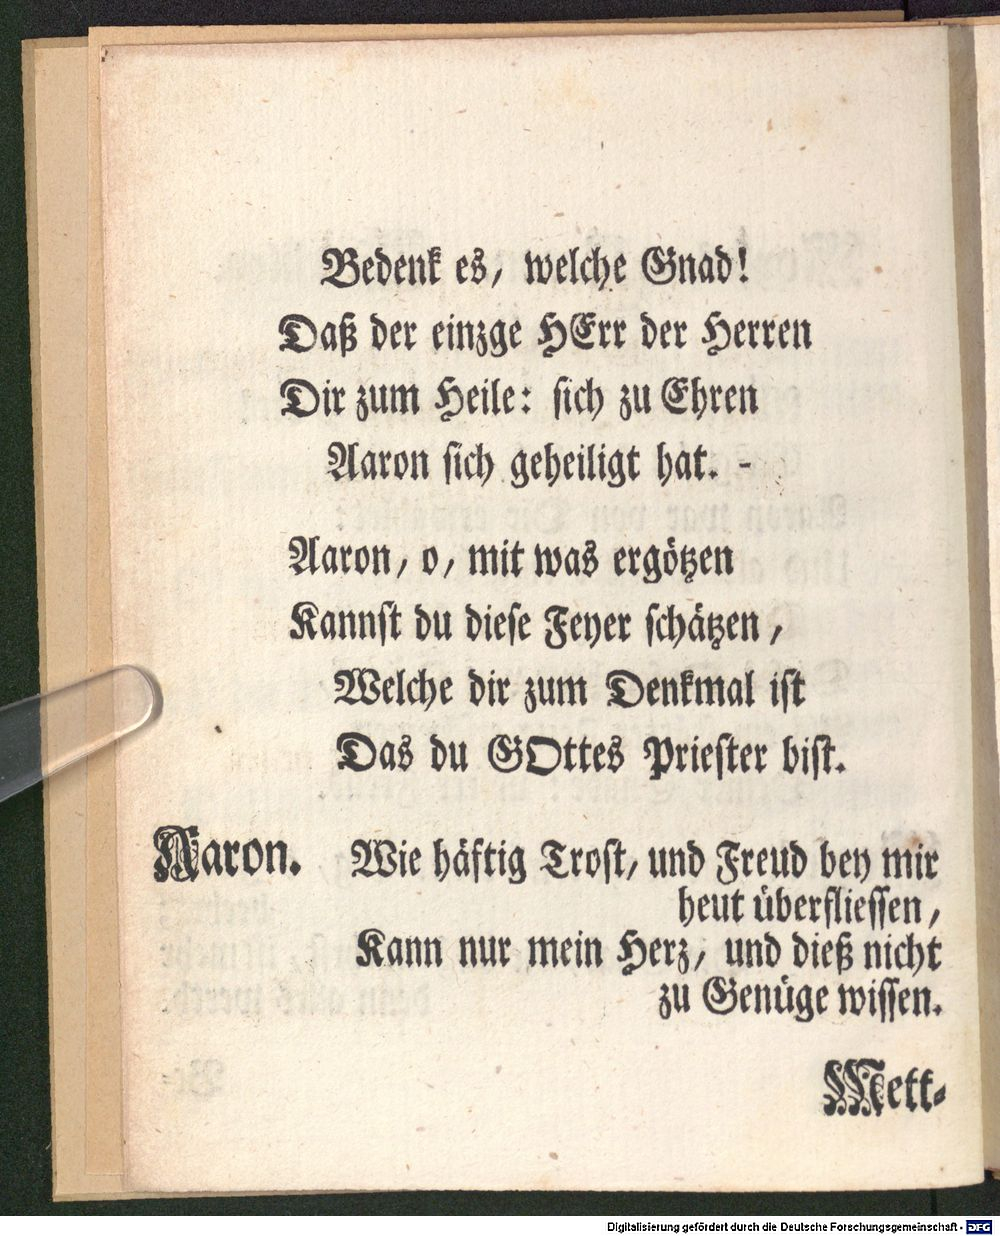 Bedenk es, welche Gnad!
Daß der einzge HErr der Herren
Dir zum Heile: sich zu Ehren
Aaron sich geheiligt hat. -
Aaron, o, mit was ergötzen
Kannst du diese Feyer schätzen,
Welche dir zum Denkmal ist
Das du GOttes Priester bist.
Aaron. Wie häftig Trost, und Freud bey mir
heut überfliessen,
Kann nur mein Herz, und dieß nicht
zu Genüge wissen.
Mett-
Digitalisierung gefördert durch die Deutsche Forschungsgemeinschaft - DFG